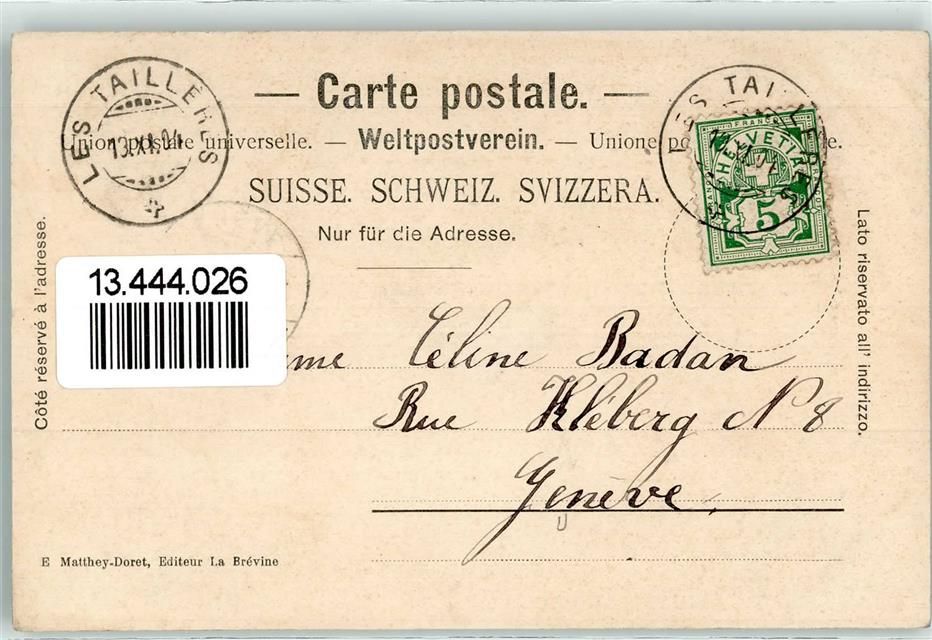 — Carte postale. —
Union postale universelle. — Weltpostverein. — Unione
SUISSE. SCHWEIZ. SVIZZERA.
Nur für die Adresse.
LES TAILLÈRES
13.XI.04
LES TAILLÈRES
FRANCO
HELVETIA
5
Côté réservé à l'adresse.
Lato riservato all' indirizzo.
13.444.026
Céline Badan
Rue Kléberg N 8
Genève
E Matthey-Doret, Editeur La Brévine